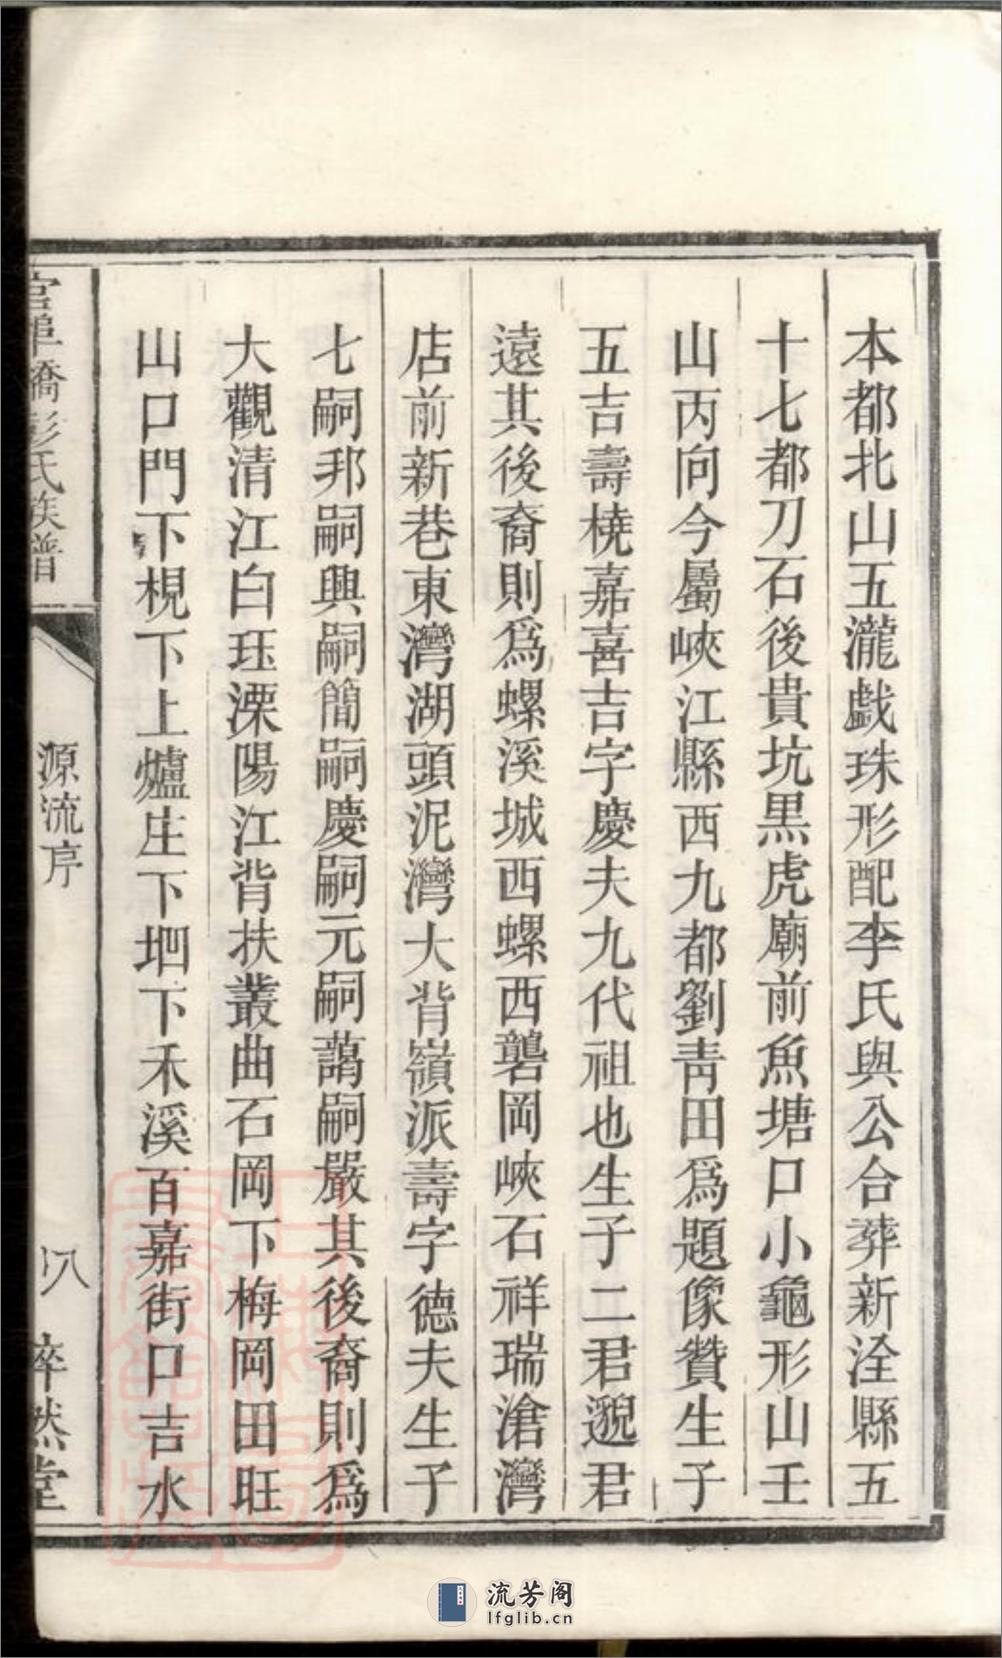 本都北山五瀧戱珠形配李氏與公合葬新淦縣五
十七都刀石後貴坑黑虎廟前魚塘口小龜形山壬
山丙向今屬峽江縣西九都劉靑田爲題像贊生子
五吉壽橈嘉喜吉字慶夫九代祖也生子二君邈君
遠其後裔則爲螺溪城西螺西礱岡峽石祥瑞滄灣
店前新巷東灣湖頭泥灣大背嶺派壽字德夫生子
七嗣邦嗣興嗣簡嗣慶嗣元嗣藹嗣嚴其後裔則爲
大觀清江白珏溧陽江背扶叢曲石岡下梅岡田旺
山口門下梘下上爐庄下垇下禾溪百嘉街口吉水
官埠橋彭氏族譜
源流序
八
睟然堂
流芳阁
lfglib.cn